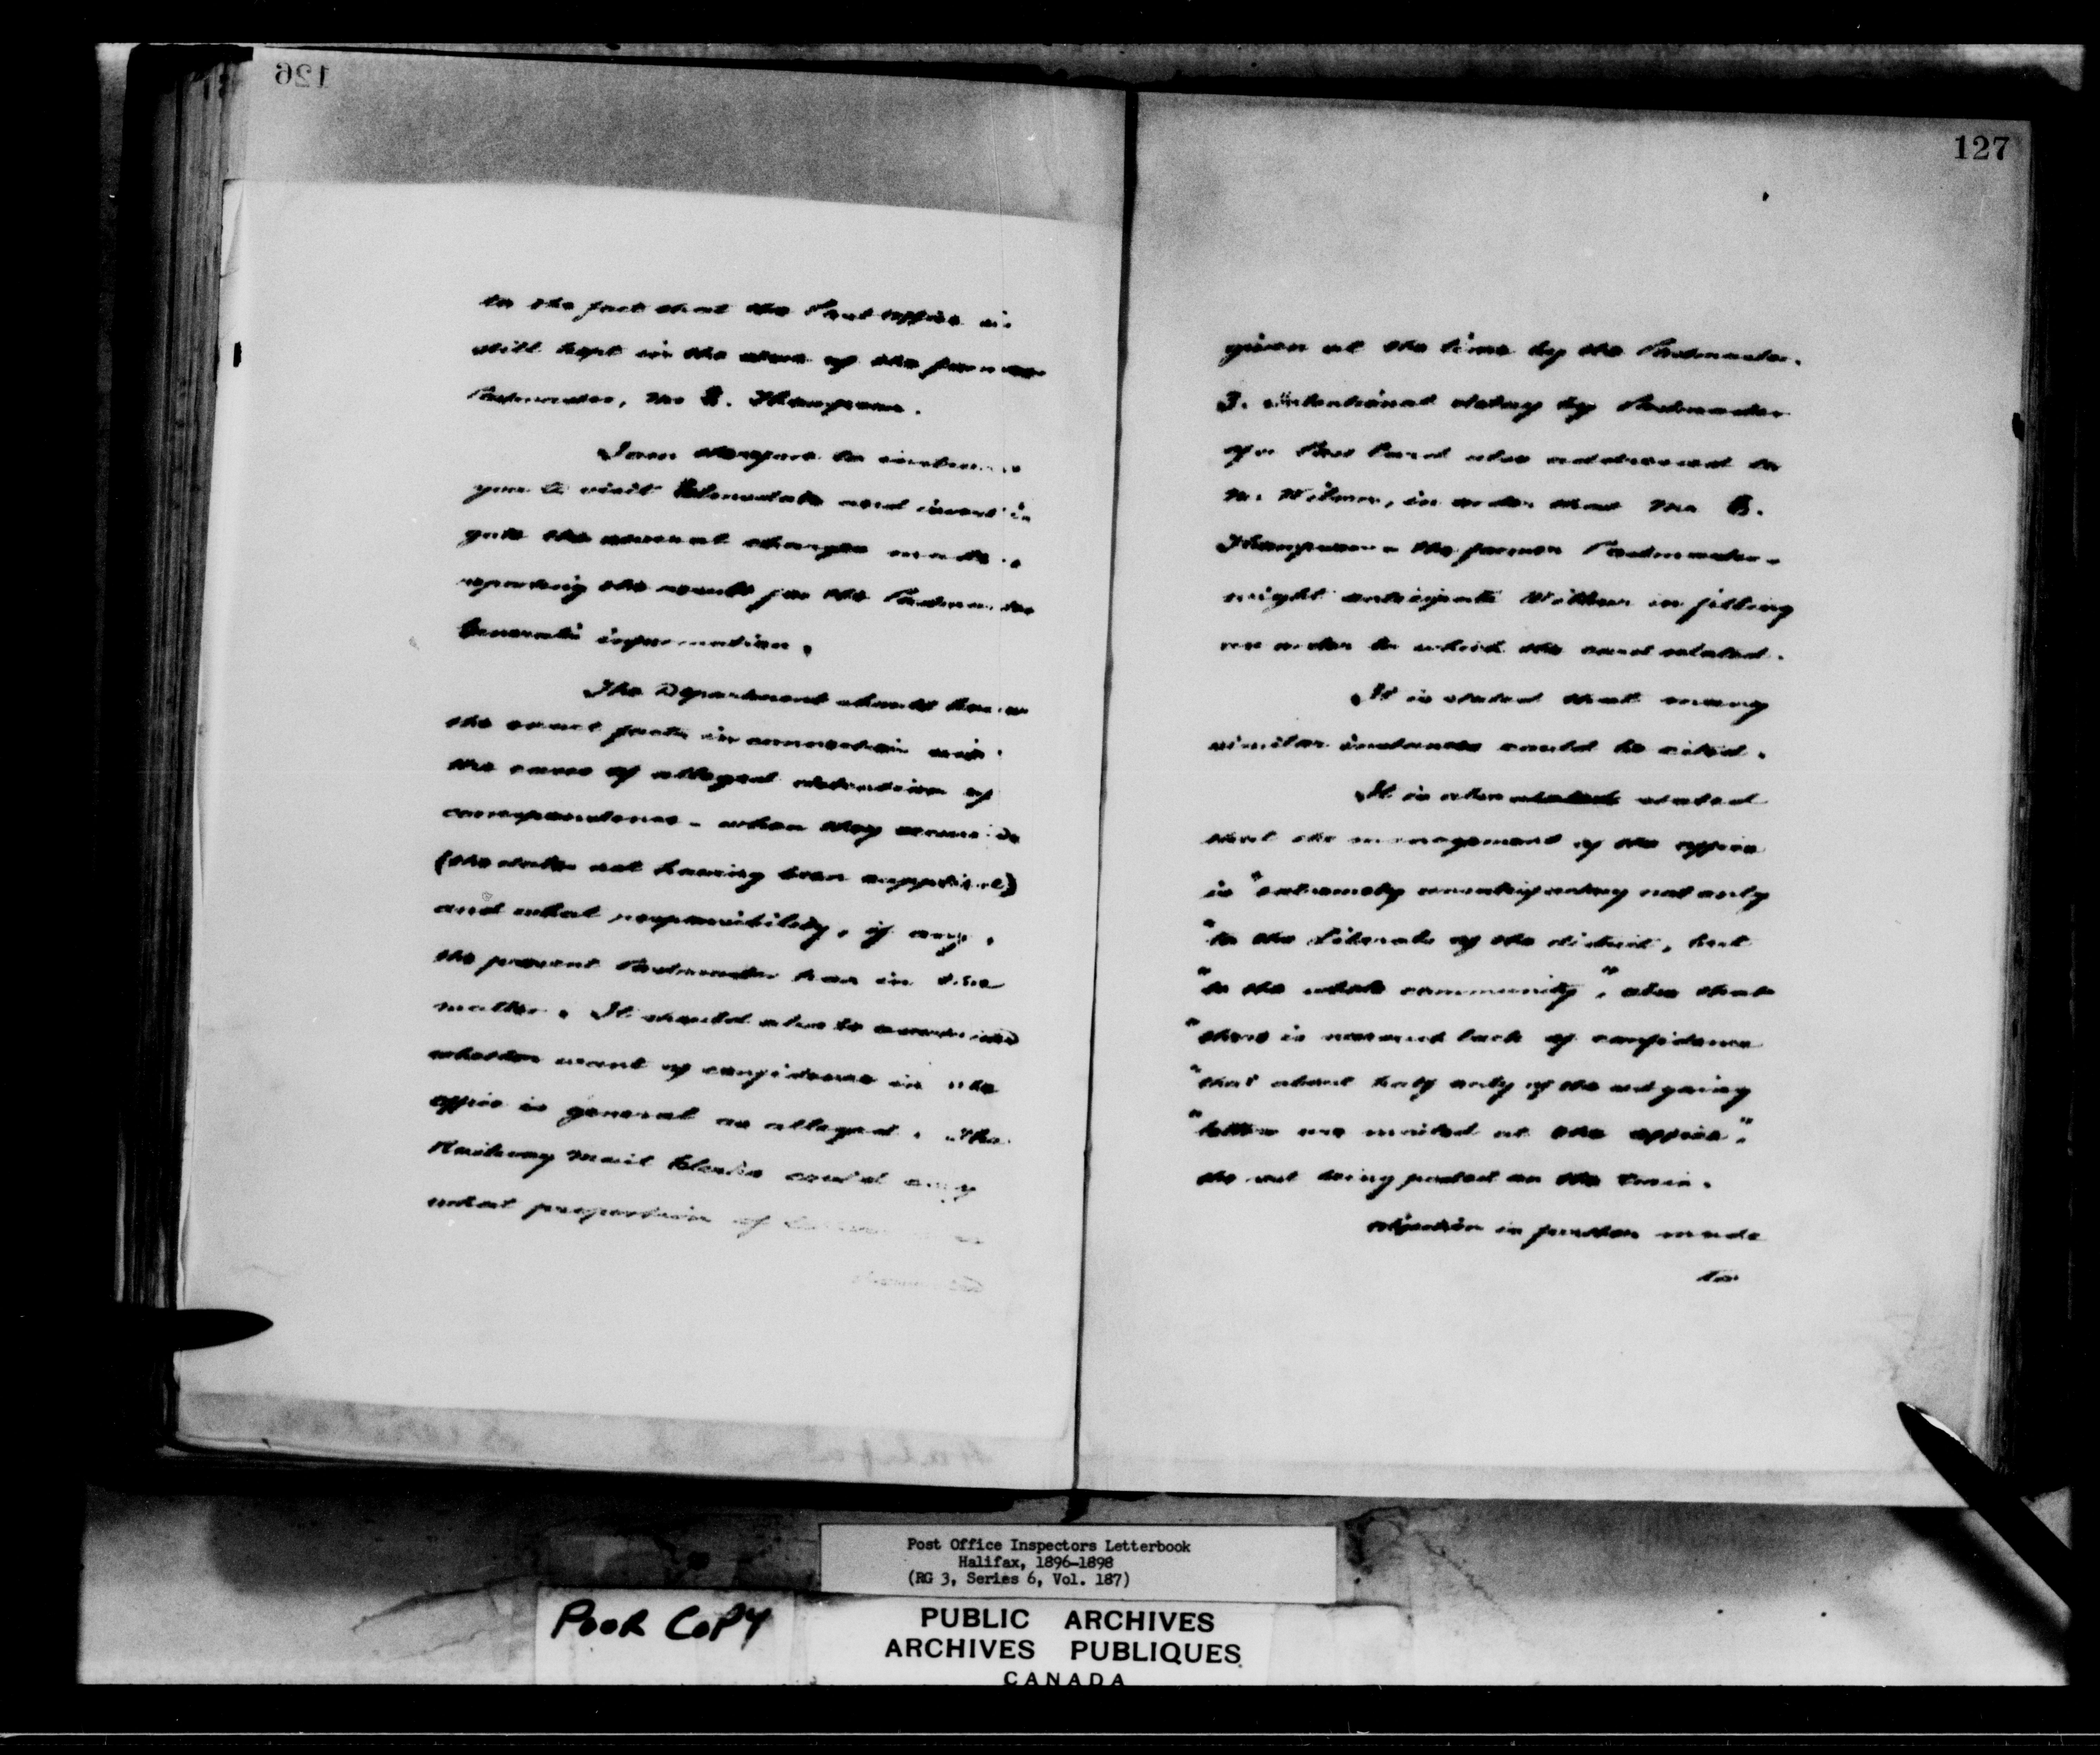 126
to the fact that the Post office is
still kept in the store of the former
Postmaster, Mr B. Thompson.
I am therefore to instruct
you to visit Glendale and investi
gate the several charges made,
reporting the result for the Postmaster
General's information.
The Department should know
the exact facts in connection with
the cases of alleged detention of
correspondence - when they occurred
(the dates not having been supplied)
and what responsibility, if any,
the present Postmaster has in the
matter. It should also be ascertained
whether want of confidence in the
office is general as alleged. The
Railway Mail Clerks could say
what proportion of
127
given at the time by the Postmaster.
3. Intentional delay by Postmaster
of a Post Card also addressed to
Mr. Wilmer, in order that Mr B.
Thompson - the former Postmaster -
might anticipate in filling
an order to which the card related.
It is stated that many
similar instances could be cited.
It is also stated
that the management of the office
is "extremely unsatisfactory not only
"to the Liberals of the district, but
"to the whole community", also that
"there is so much lack of confidence
"that about half only of the outgoing
"letters are mailed at the office",
the rest being posted on the train.
Objection is further made
to
Post Office Inspectors Letterbook
Halifax, 1896-1898
(RG 3, Series 6, Vol. 187)
POOR COPY
PUBLIC ARCHIVES
ARCHIVES PUBLIQUES
CANADA